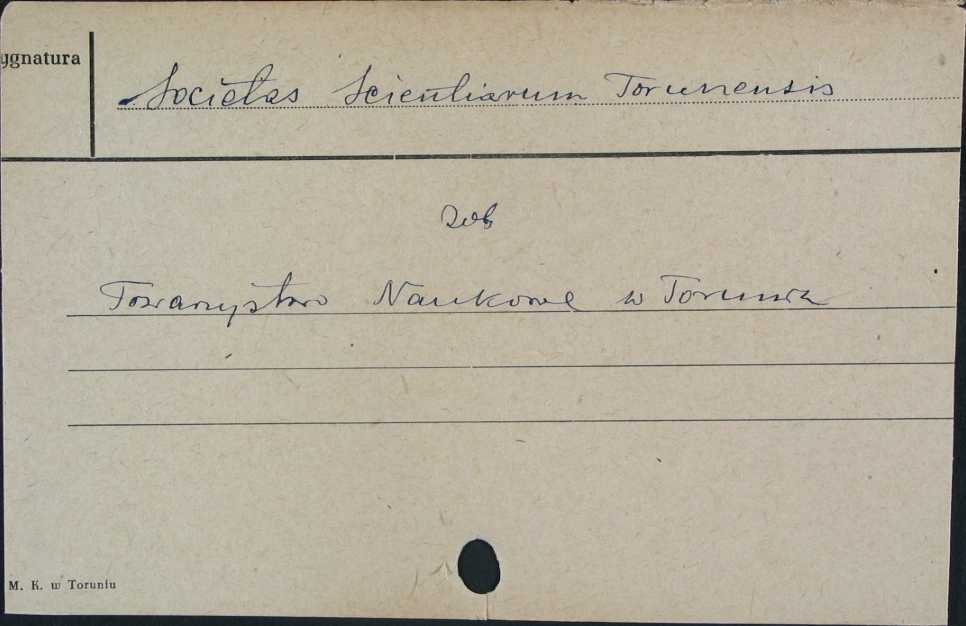 ygnatura
Societas Scientiarum Torunensis
zob
Towarzystwo Naukowe w Toruniu
M. K. w Toruniu